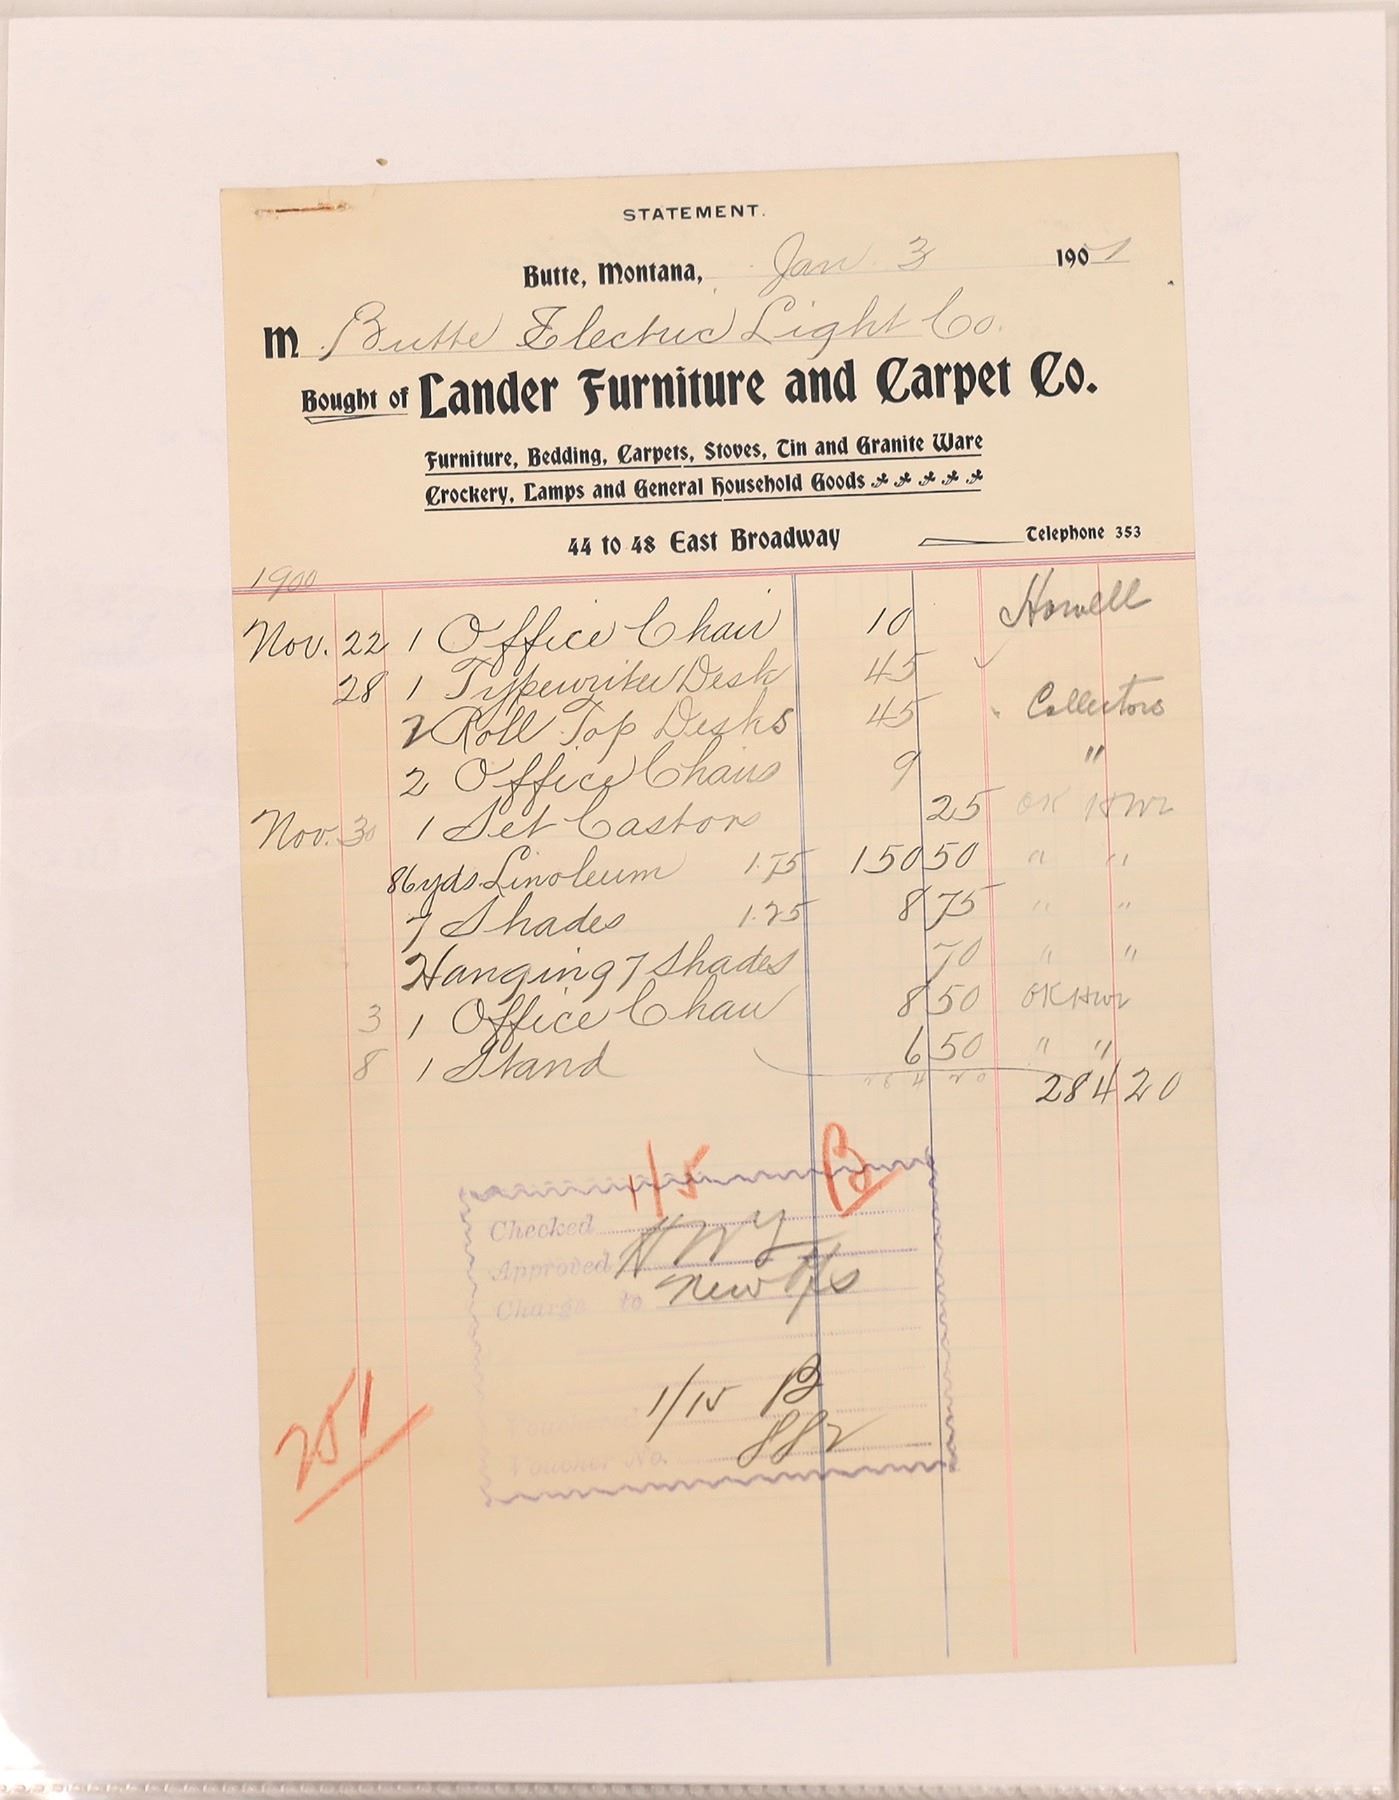 STATEMENT.
Butte, Montana, Jan 3 1901
M Butte Electric Light Co.
Bought of Lander Furniture and Carpet Co.
Furniture, Bedding, Carpets, Stoves, Tin and Granite Ware
Crockery, Lamps and General Household Goods
44 to 48 East Broadway Telephone 353
1900
Nov. 22 1 Office Chair 10 Howell
28 1 Typewriter Desk 45
2 Roll Top Desks 45 Collectors
2 Office Chairs 9 "
Nov. 30 1 Set Castors 25 OK HWr
86 yds. Linoleum 1.75 150 50 " "
7 Shades 1.25 8 75 " "
Hanging 7 Shades 70 " "
3 1 Office Chair 8 50 OK HWr
8 1 Stand 6 50 " "
284 20 284 20
1/15 B
Checked
Approved HWY
Charge to New
1/15 B
Vouchered
Voucher No. 882
251